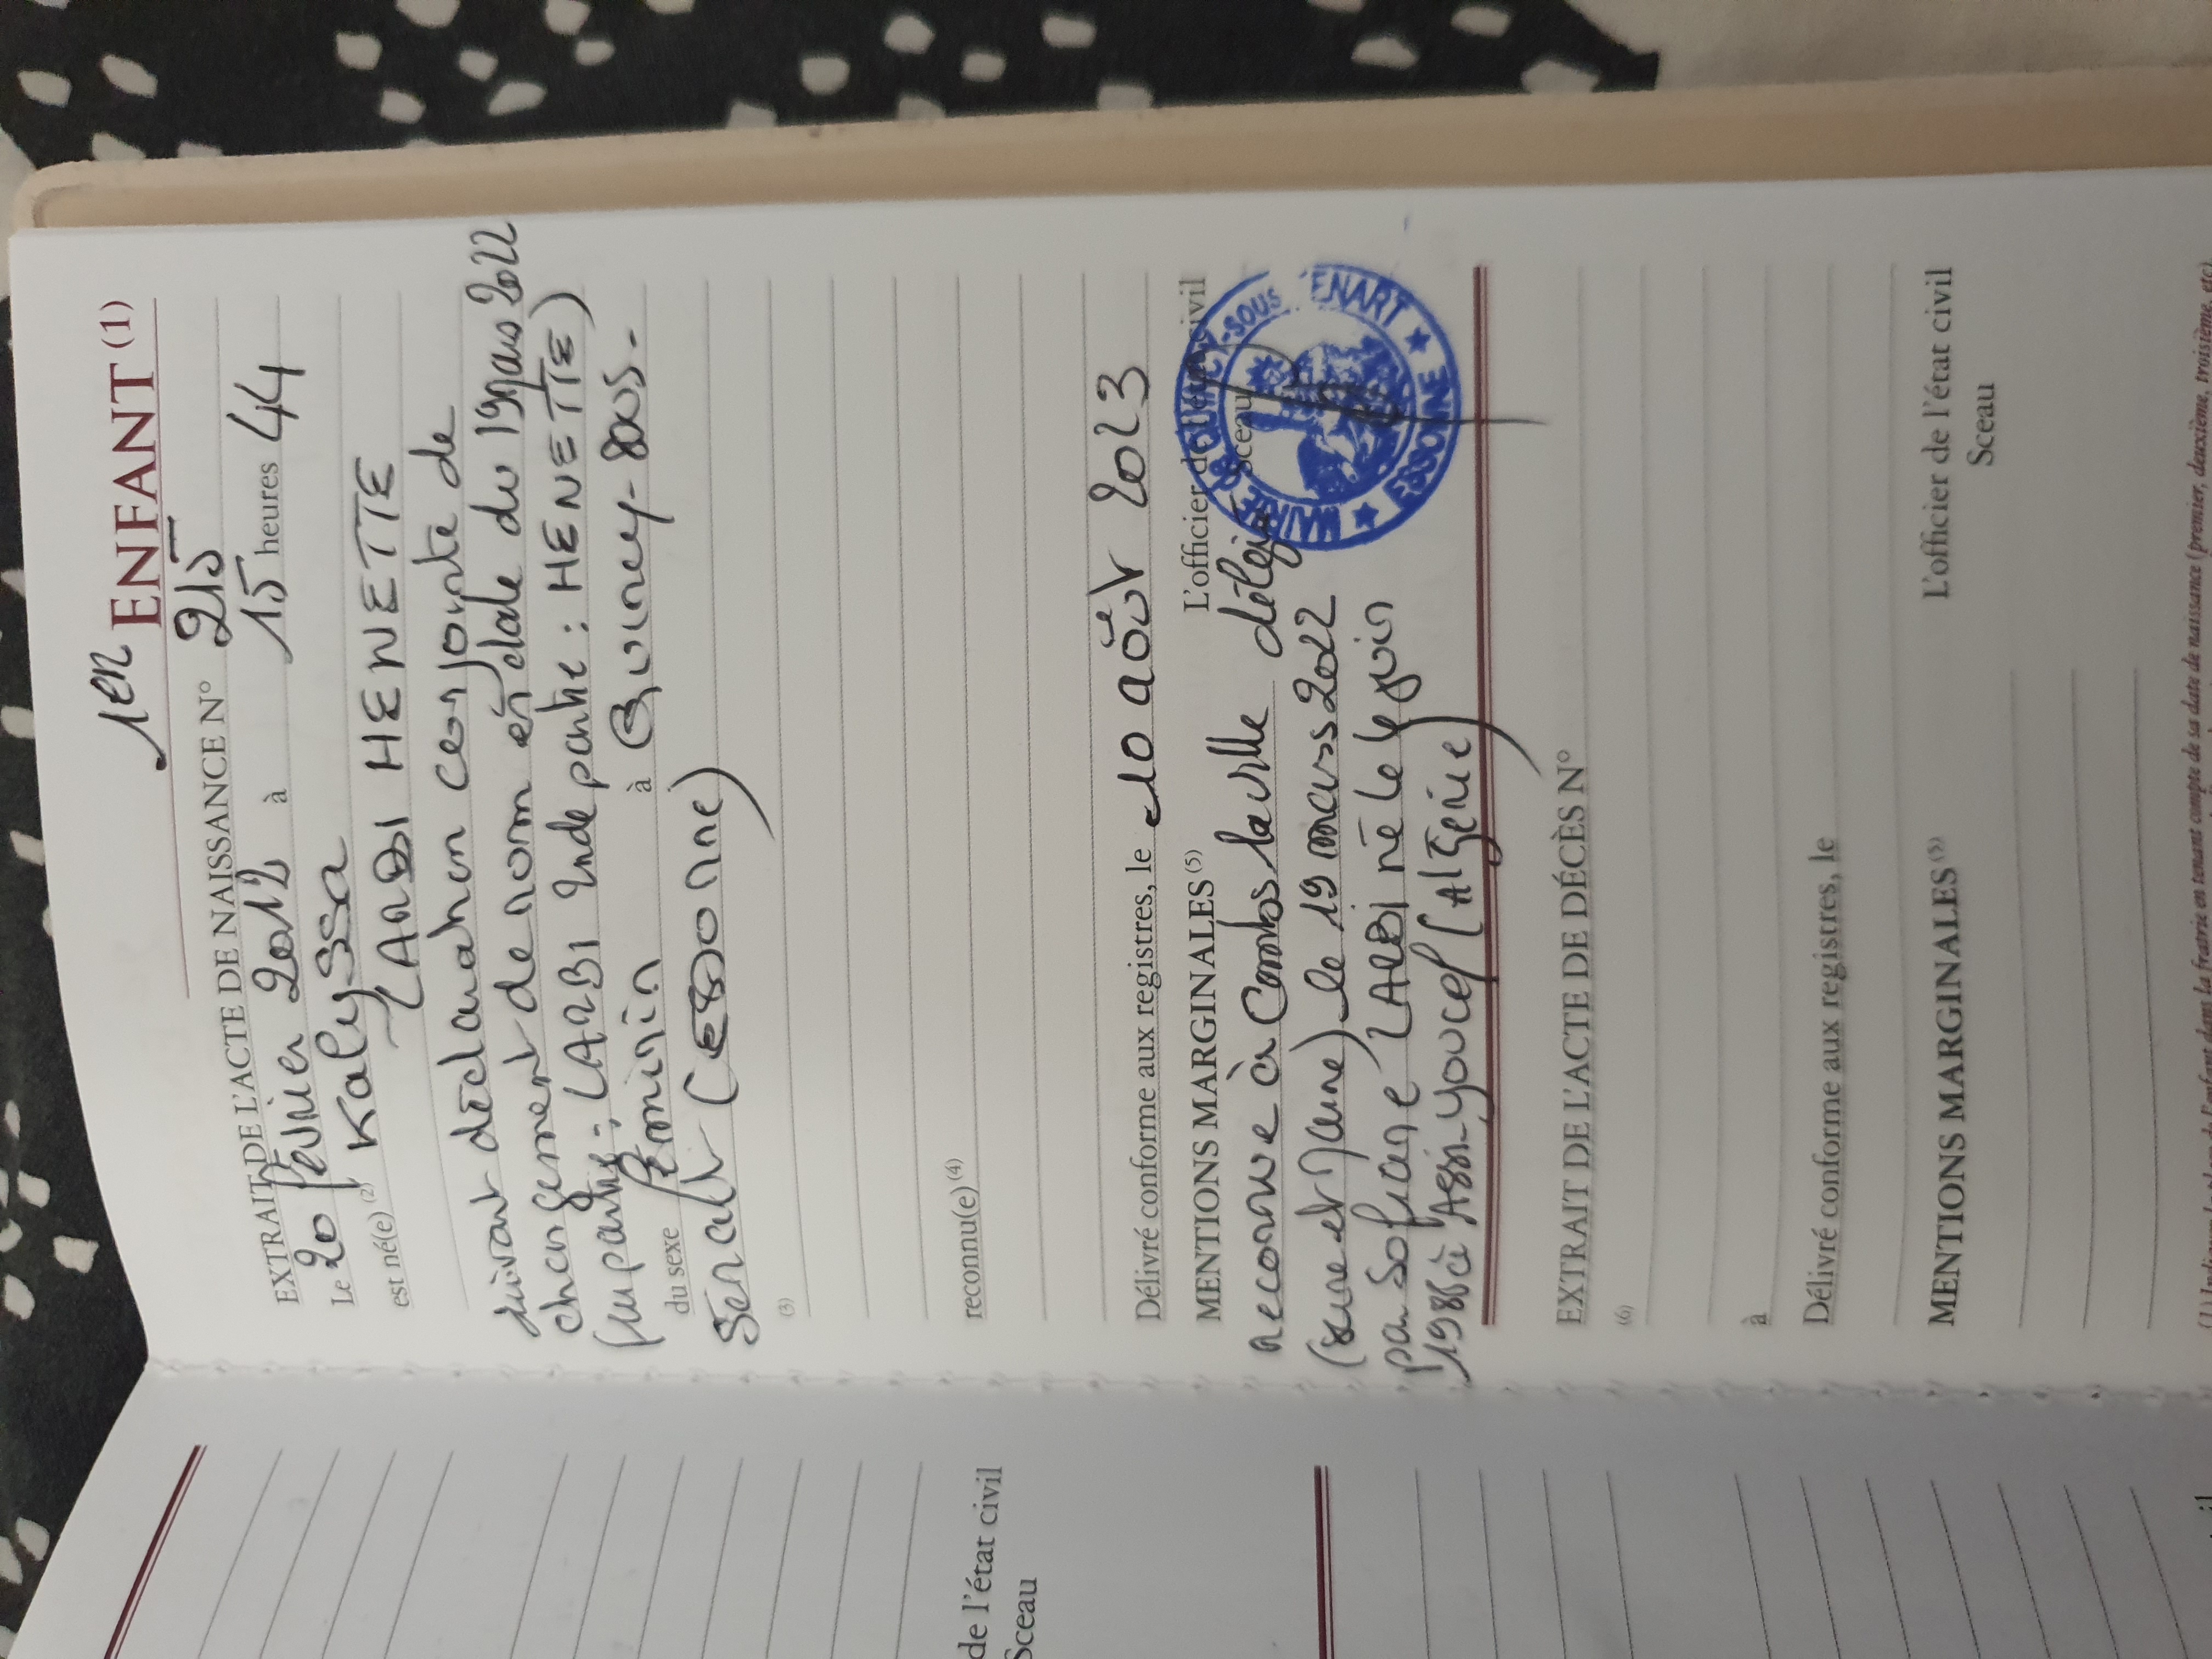 1er ENFANT (1)
EXTRAIT DE L'ACTE DE NAISSANCE N° 215
Le 20 février 2012 à 15 heures 44
est né(e) (2) Kalyssa
LARBI HENETTE
suivant déclaration conjointe de
changement de nom en date du 19 mars 2022
(1ère partie : LARBI 2nde partie : HENETTE)
du sexe féminin à Quincy-sous-
Sénart (Essonne)
(3)
reconnu(e) (4)
Délivré conforme aux registres, le 10 août 2023
MENTIONS MARGINALES (5) L'officier de l'état civil
Sceau
reconnue à Combs la ville délégué
(seine et Marne) le 19 mars 2022
par Sofiane LARBI né le 4 juin
1986 à Assi-Youcef (Algérie)
MAIRIE DE QUINCY-SOUS SÉNART
★ ESSONNE ★
EXTRAIT DE L'ACTE DE DÉCÈS N°
(6)
à
Délivré conforme aux registres, le
MENTIONS MARGINALES (5) L'officier de l'état civil
Sceau
(1) Indiquer le rang de l'enfant dans la fratrie en tenant compte de sa date de naissance (premier, deuxième, troisième, etc)
de l'état civil
Sceau